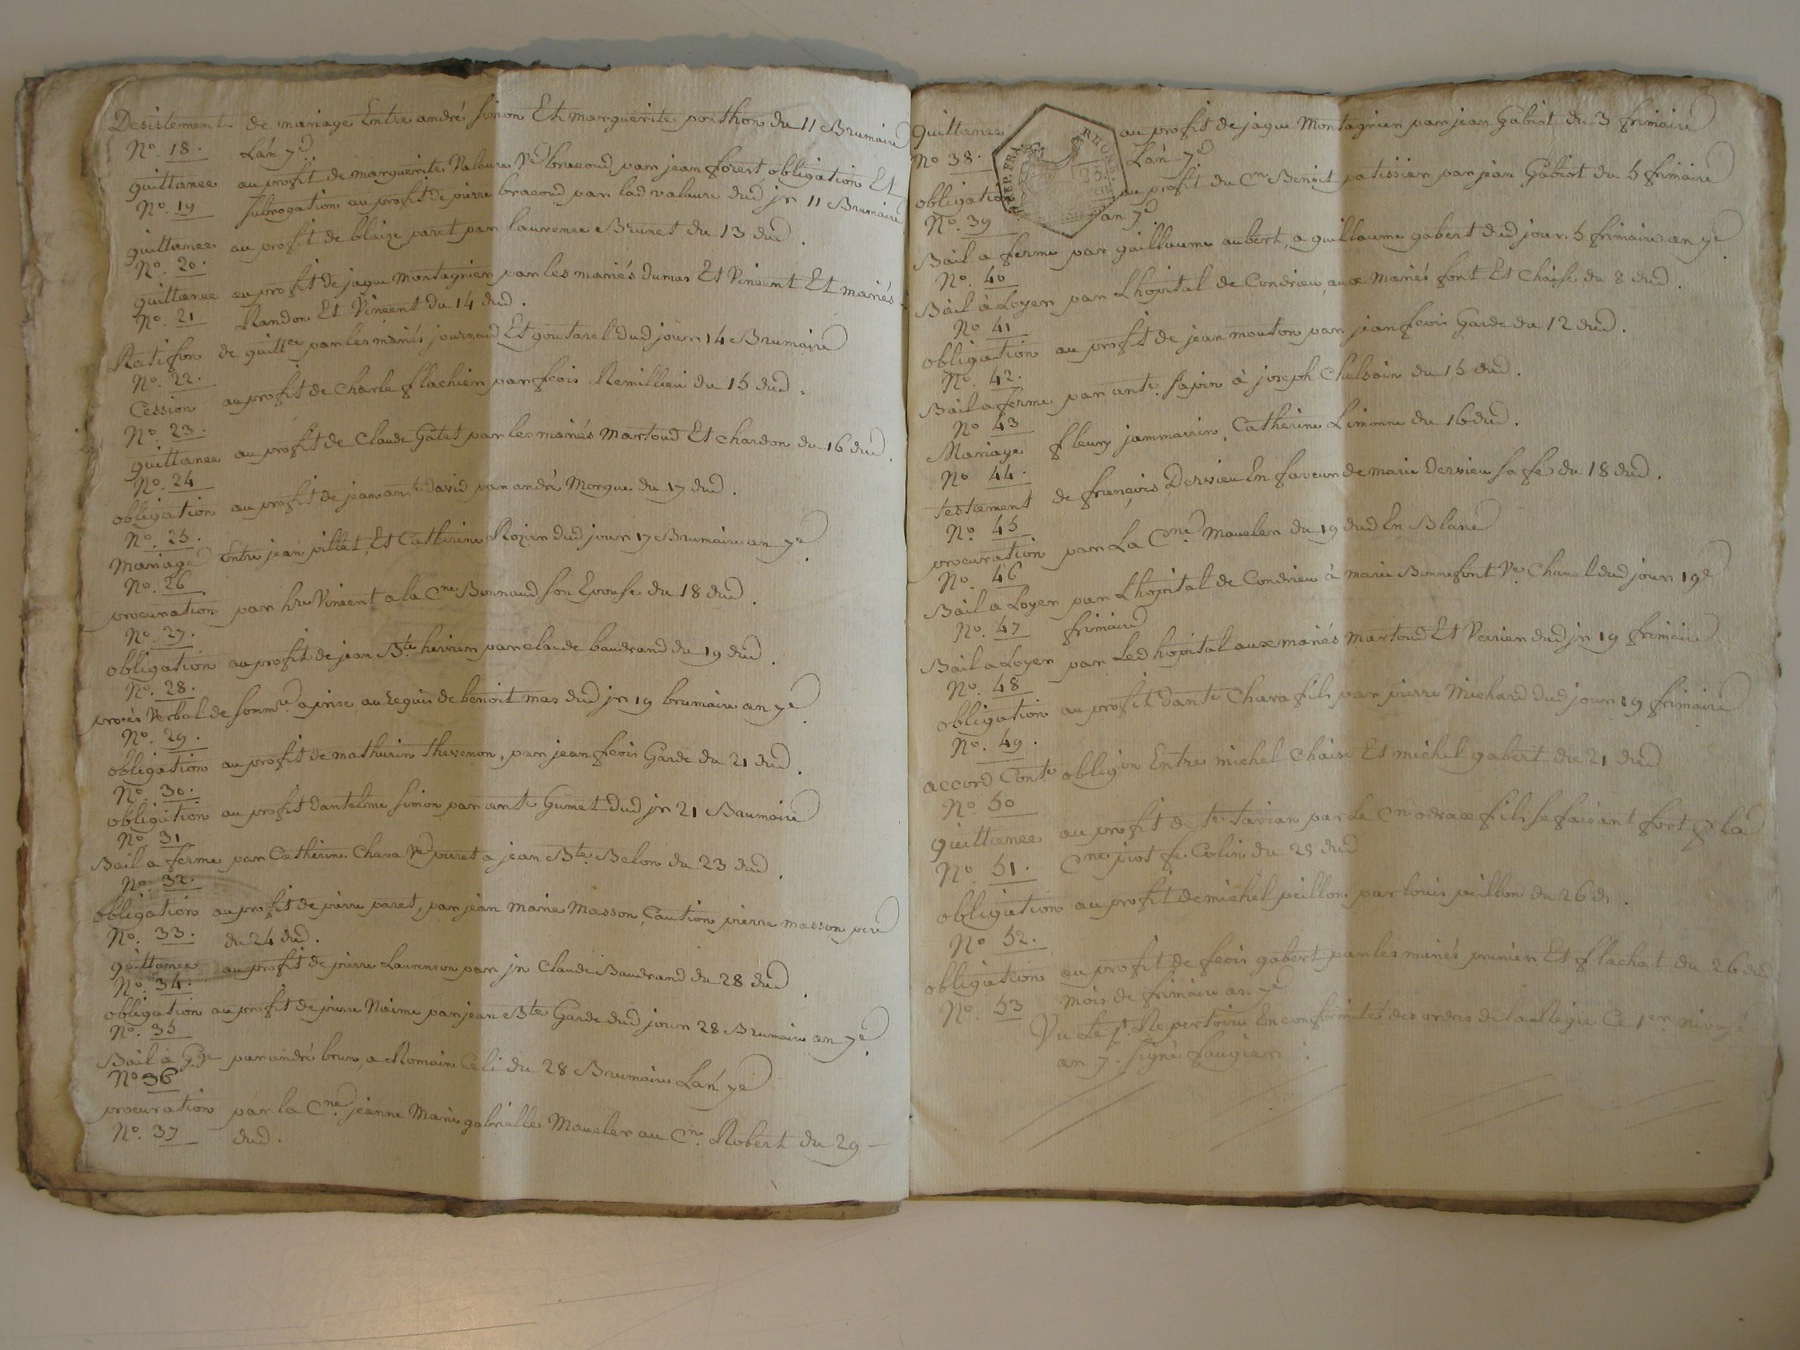 Desistement de mariage Entre andré simon Et marguerite ponthon du 11 Brumaire
N.º 18. Lan 7.e
quittance au profit de marguerite Valaure V.e bracoud par jean forert obligation Et
N.º 19 subrogation au profit de pierre bracoud par lad valaure dud jr 11 Brumaire
quittance au profit de blaize paret par laurence Brunet du 13 dud.
N.º 20.
quittance au profit de jaque montagnier par les mariés dumas Et Vincent Et mariés
N.º 21 Randon Et Vincent du 14 dud.
Ratifon de quittce par les mariés journoud Et goutarel dud jour 14 Brumaire
N.º 22.
Cession au profit de charle flachier par fcois Remillieu du 15 dud.
N.º 23.
quittance au profit de Claude Gatet par les mariés Martoud Et chardon du 16 dud.
N.º 24
obligation au profit de jean ant. david par andré Morgue du 17 dud.
N.º 25.
Mariage Entre jean pillet Et Catherine Rozier dud jour 17 Brumaire an 7.e
N.º 26
procuration par hri Vincent a la C.ne Bonnaud son Epouse du 18 dud.
N.º 27.
obligation au profit de jean B.te hivrier par claude baudrand du 19 dud.
N.º 28.
procès Verbal de somm.re aprise au Requis de benoit mas dud jr 19 brumaire an 7.e
N.º 29.
obligation au profit de mathurin thevenon, par jean fcois Garde du 21 dud.
N.º 30.
obligation au profit dantelme simon par ant. Gumet dud jr 21 Baumaire
N.º 31
Bail a ferme par Catherine Chava V.e perret a jean B.te Belon du 23 dud.
N.º 32.
obligation au profit de pierre paret, par jean marie Masson, Caution pierre masson pere
N.º 33. du 24 dud.
quittance au profit de pierre Laurenson par jn Claude Baudrand du 28 dud.
N.º 34.
obligation au profit de pierre Naime par jean B.te Garde dud jour 28 Brumaire an 7.e
N.º 35
Bail à par andré brun, a Romain du 28 Brumaire Lan 7.e
N.º 36
procuration par la C.ne jeanne Marie gabrielle Mauclerc au C.n Robert du 29 –
N.º 37 dud.
quittance au profit de jaque Montagnier par jean Gabert du 3 frimaire
N.º 38. Lan 7.e
REP. FRA. RHONE. 25 cen
obligation au profit du C.n Benoit patissier par jean Gabert du 5 frimaire
N.º 39 an 7.e
Bail a ferme par guillaume aubert, a guillaume gabert dud jour 5 frimaire an 7.e
N.º 40
Bail à Loyer par Lhopital de Condrieu aux mariés font Et Chaise du 8 dud.
N.º 41
obligation au profit de jean mouton par jean fcois Garde du 12 dud.
N.º 42.
Bail a ferme par ant. sapin à joseph du 15 dud.
N.º 43
Mariage fleury jammairin, Catherine Limonne du 16 dud.
N.º 44.
testament de françois Dervieu En faveur de marie Dervieu sa fe du 18 dud.
N.º 45
procuration par La C.ne Mauclerc du 19 dud En Blanc
N.º 46
Bail a Loyer par Lhopital de Condrieu à marie Bonnefont V.e Chanal dud jour 19.e
N.º 47 frimaire
Bail a Loyer par Led hopital aux mariés Martoud Et Verrier dud jr 19 frimaire
N.º 48
obligation au profit dant.e Chava fils par pierre Michard dud jour 19 frimaire
N.º 49.
accord Cont.t obligon Entre michel Chaise Et michel gabert du 21 dud
N.º 50
quittance au profit de tavian par le C.n fils se faisant fort pr la
N.º 51. C.ne fe Colin du 25 dud
obligation au profit de michel peillon par louis peillon du 26 d.
N.º 52.
obligation au profit de fcois gabert par les mariés prunier Et flachat du 26 dud
N.º 53 mois de frimaire an 7.e
Vu Le pt Repertoire En conformité des ordres de la Regie Ce 1er nivose
an 7. signé faugier.